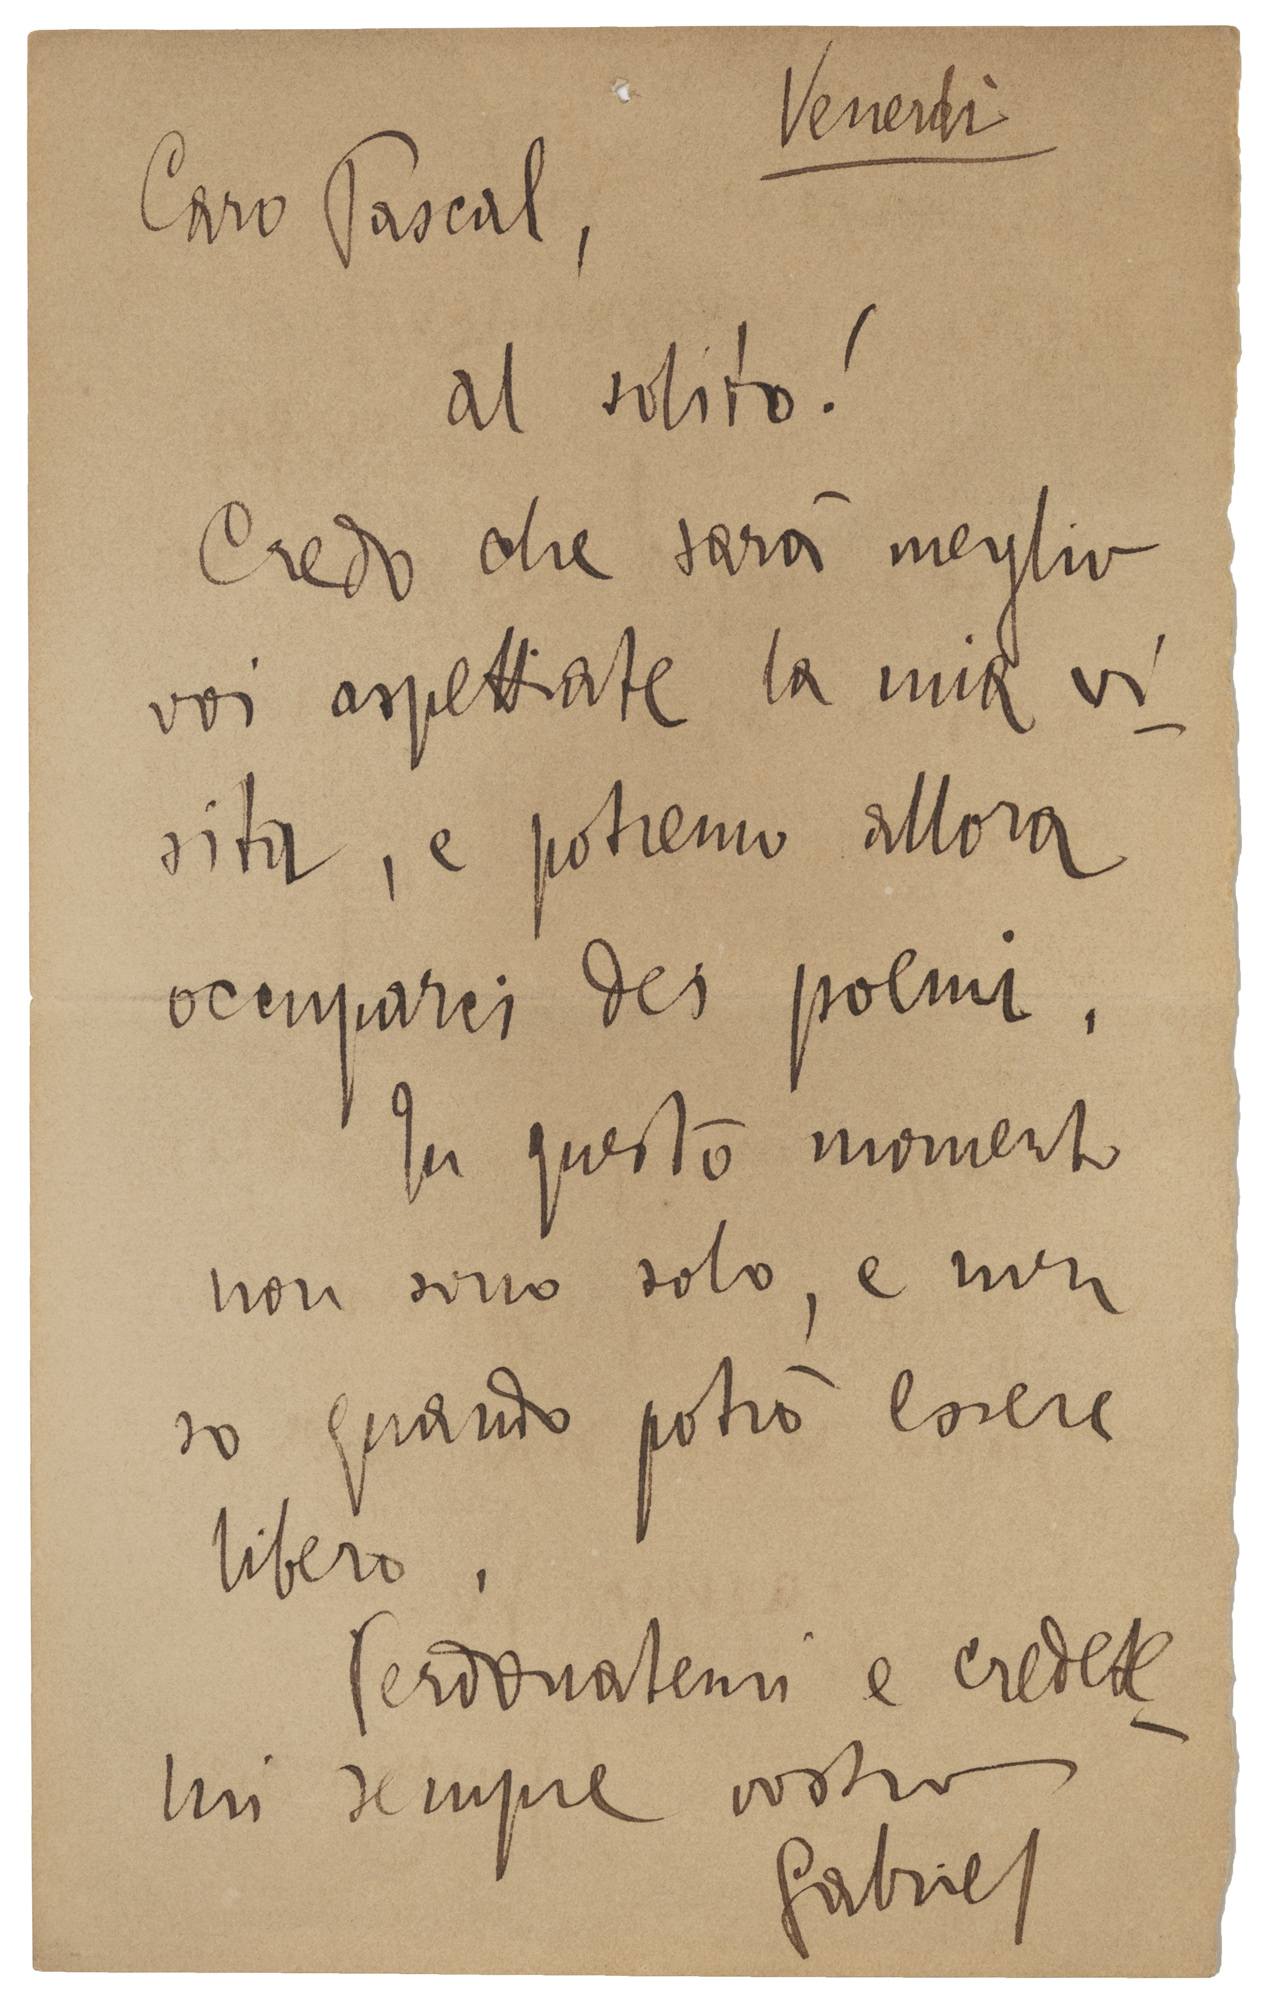 Venerdì
Caro Pascal,
al solito!
Credo che sarà meglio
voi aspettiate la mia vi-
sita, e potremo allora
occuparci dei poemi.
In questo momento
non sono solo, e non
so quando potrò essere
libero.
Perdonatemi e credete-
mi sempre vostro
Gabriel